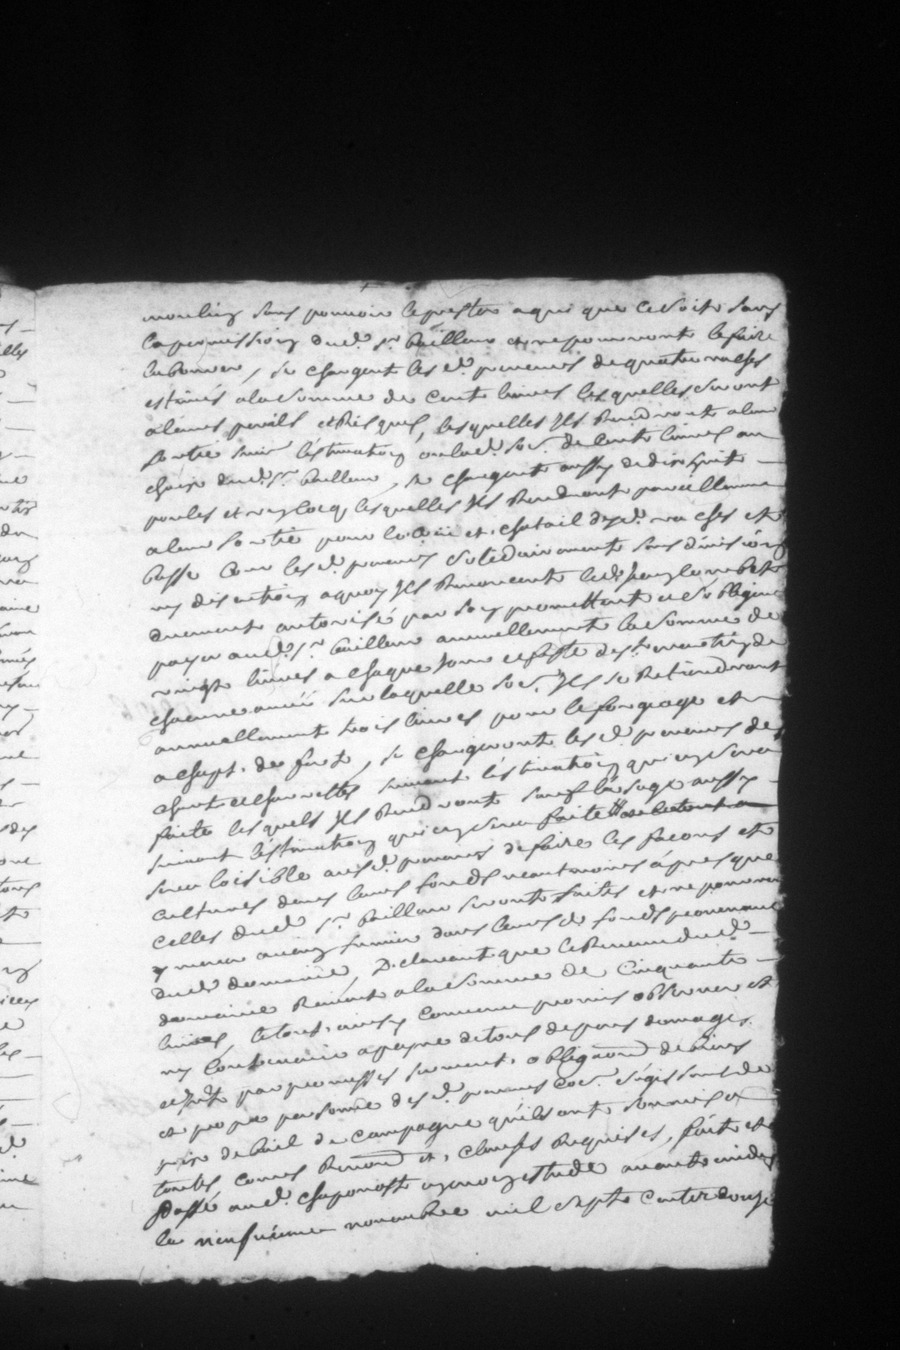 moulin sans pouvoir le prester a qui que ce soit sans
la permission dud. sr. bailleur et ne pourront le faire
se chargent les d. preneurs de quatre vaches
estimés a la somme de cent livres lesquelles seront
a leurs perils et risques, lesquelles ils rendront a leur
sortie suivt lestimation ou lad. so. de cent livres au
choix dud. sr. bailleur, se chargent aussy de dix huit
poules et un cocq lesquelles ils rendront pareillement
a leur sortie pour le et chatail desd. vaches et
basse cour les d. preneurs solidairement sans division
ny discution a quoy ils renoncent
duement autorisé par soy promettent et s'obligent
payer aud. sr. bailleur annuellement la somme de
vingt livres a chaque jour et feste de st. martin de
chacune année sur laquelle so. ils se retiendront
annuellement trois livres pour le forgeage et
achept de fert, se chargeront les d. preneurs des
chart et charrettes suivant lestimation qui en sera
faite lesquels ils rendront sauf l'usage aussy
suivant lestimation qui en sera faite
sera loisible ausd. preneurs de faire les facons et
cultures dans leurs fonds neantmoins apres que
celles dud. sr. bailleur seront faites et ne pourront
y mener aucun fumier dans leurs d. fonds provenant
dud. domaine, Declarant que le Revenu dud.
domaine Revient a la somme de Cinquante
livres, le tout ainsy convenu promis observer et
ny contrevenir a payne de tous depans domages
et par promesses serment, obligaon de biens
et propre personne des d. preneurs
prix de bail de campagne qu'ils ont
toutes cours Renonon et clauses requises, fait et
passé aud. chaponost en mon estude avant midy
le neufvieme novambre mil sept cent douze